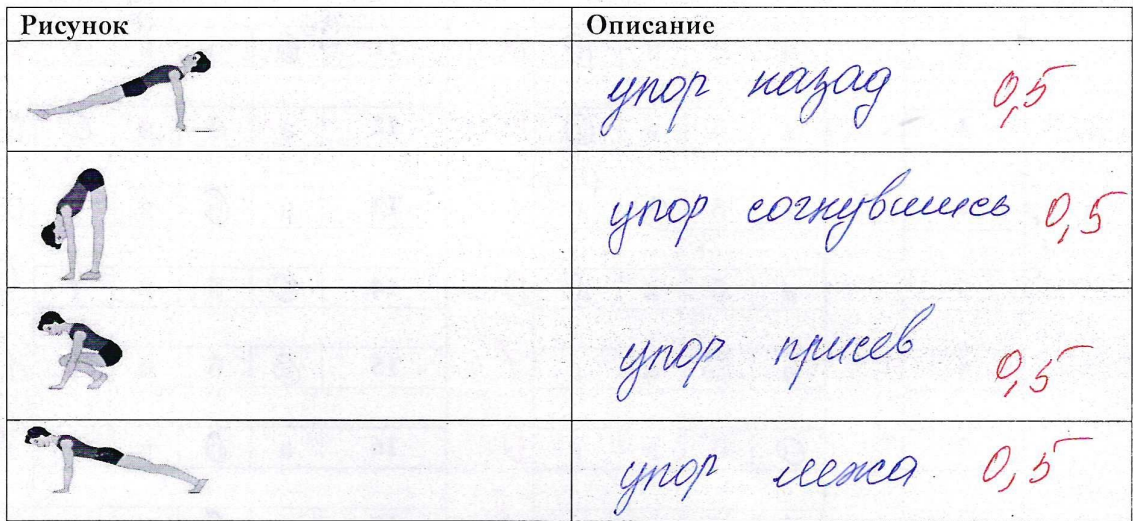 Рисунок Описание
упор назад 0,5
упор согнувшись 0,5
упор присев 0,5
упор лежа 0,5